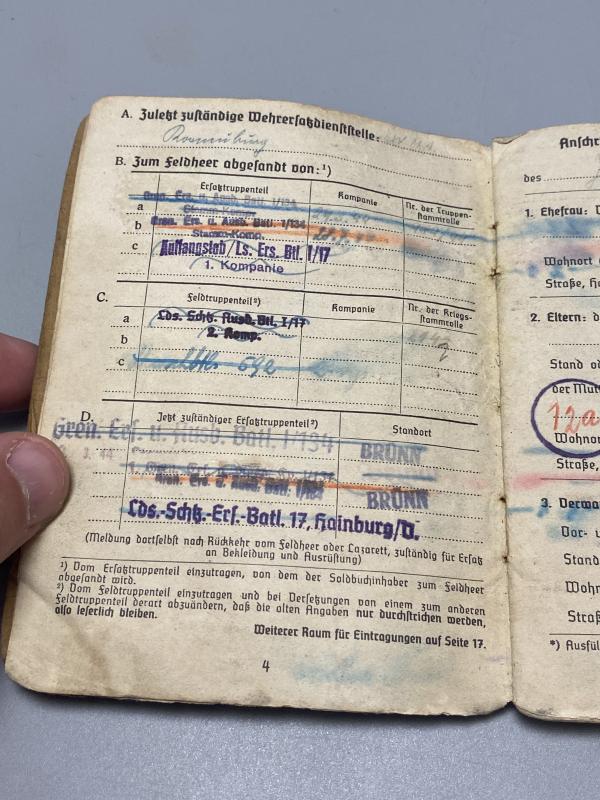 A. Zuletzt zuständige Wehrersatzdienststelle:
B. Zum Feldheer abgesandt von:¹)
Ersatztruppenteil
Kompanie
Nr. der Truppen-
stammrolle
a
Gren. Ers. u. Ausb. Batl. I/134
Stamm-Komp.
b
Gren. Ers. u. Ausb. Batl. I/134
Stamm-Komp.
c
Auffangstab/Ls. Ers. Btl. I/17
1. Kompanie
C.
Feldtruppenteil²)
Kompanie
Nr. der Kriegs-
stammrolle
a
Lds. Schtz. Ausb. Btl. I/17
2. Komp.
b
c
D.
Jetzt zuständiger Ersatztruppenteil²)
Standort
Gren. Ers. u. Ausb. Batl. I/134
BRÜNN
Gren. Ers. u. Ausb. Batl. I/134
BRÜNN
Lds.-Schtz.-Ers.-Batl. 17, Hainburg/D.
(Meldung dortselbst nach Rückkehr vom Feldheer oder Lazarett, zuständig für Ersatz
an Bekleidung und Ausrüstung)
¹) Vom Ersatztruppenteil einzutragen, von dem der Soldbuchinhaber zum Feldheer
abgesandt wird.
²) Vom Feldtruppenteil einzutragen und bei Versetzungen von einem zum anderen
Feldtruppenteil derart abzuändern, daß die alten Angaben nur durchstrichen werden,
also leserlich bleiben.
Weiterer Raum für Eintragungen auf Seite 17.
4
Anschr
des
1. Ehefrau:
Wohnort
Straße, H
2. Eltern: d
Stand od
der Mut
12a
Wohnor
Straße,
3. Verwa
Vor- u
Stand
Wohn
Straß
*) Ausfül